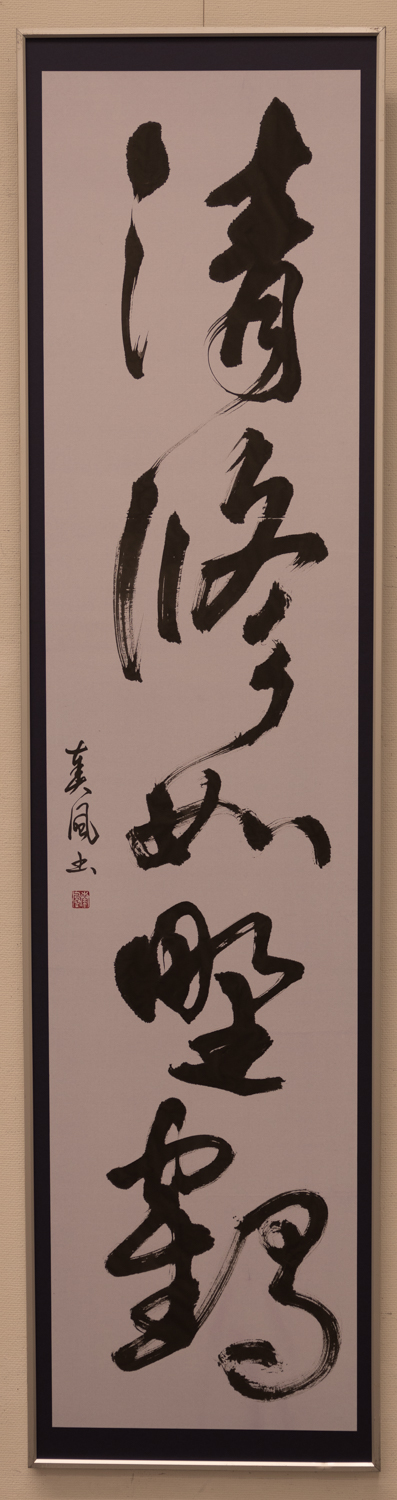 清修如野鶴
真風書